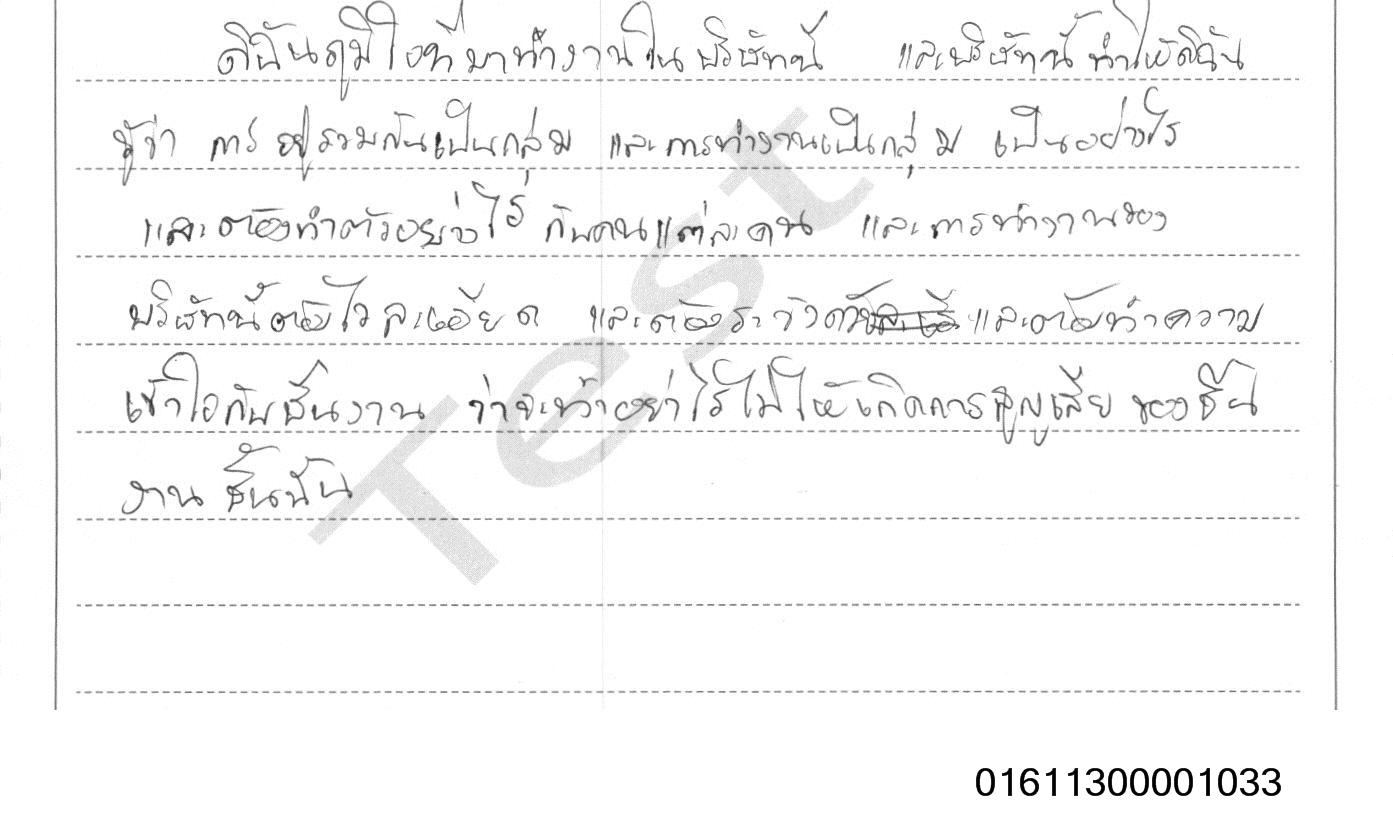 ดิฉันภูมิใจที่มาทำงานในบริษัทนี้ และบริษัทนี้ทำให้ดิฉัน
รู้ว่า การอยู่รวมกันเป็นกลุ่ม และการทำงานเป็นกลุ่ม เป็นอย่างไร
และต้องทำตัวอย่างไร กับคนแต่ละคน และการทำงานของ
บริษัทนี้ต้องไวละเอียด และต้องระวัง และต้องทำความ
เข้าใจกับชิ้นงาน ว่าจะทำอย่าไรไม่ให้เกิดการสูญเสีย ของชิ้น
งาน ชิ้นนั้น
Test
01611300001033